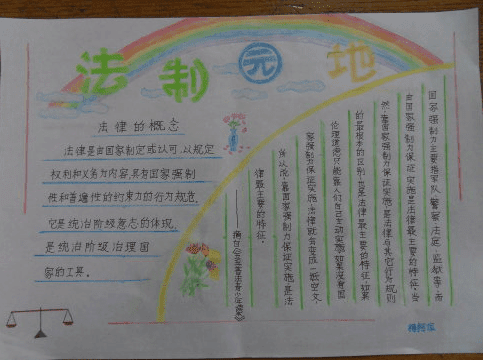 法制园地
法律的概念
法律是由国家制定或认可，以规定
权利和义务为内容，具有国家强制
性和普遍性的约束力的行为规范，
它是统治阶级意志的体现，
是统治阶级治理国
家的工具。
国家强制力主要指军队、警察、法庭、监狱等，而
由国家强制力保证实施是法律最主要的特征。当
然，靠国家强制力保证实施，是法律与其它行为规则
的最根本的区别，也是法律最主要的特征，如果
伦理道德只能靠人们自己主动实施，如果没有国
家强制力保证实施，法律就会变成一纸空文，
所以说，靠国家强制力保证实施是法
律最主要的特征。